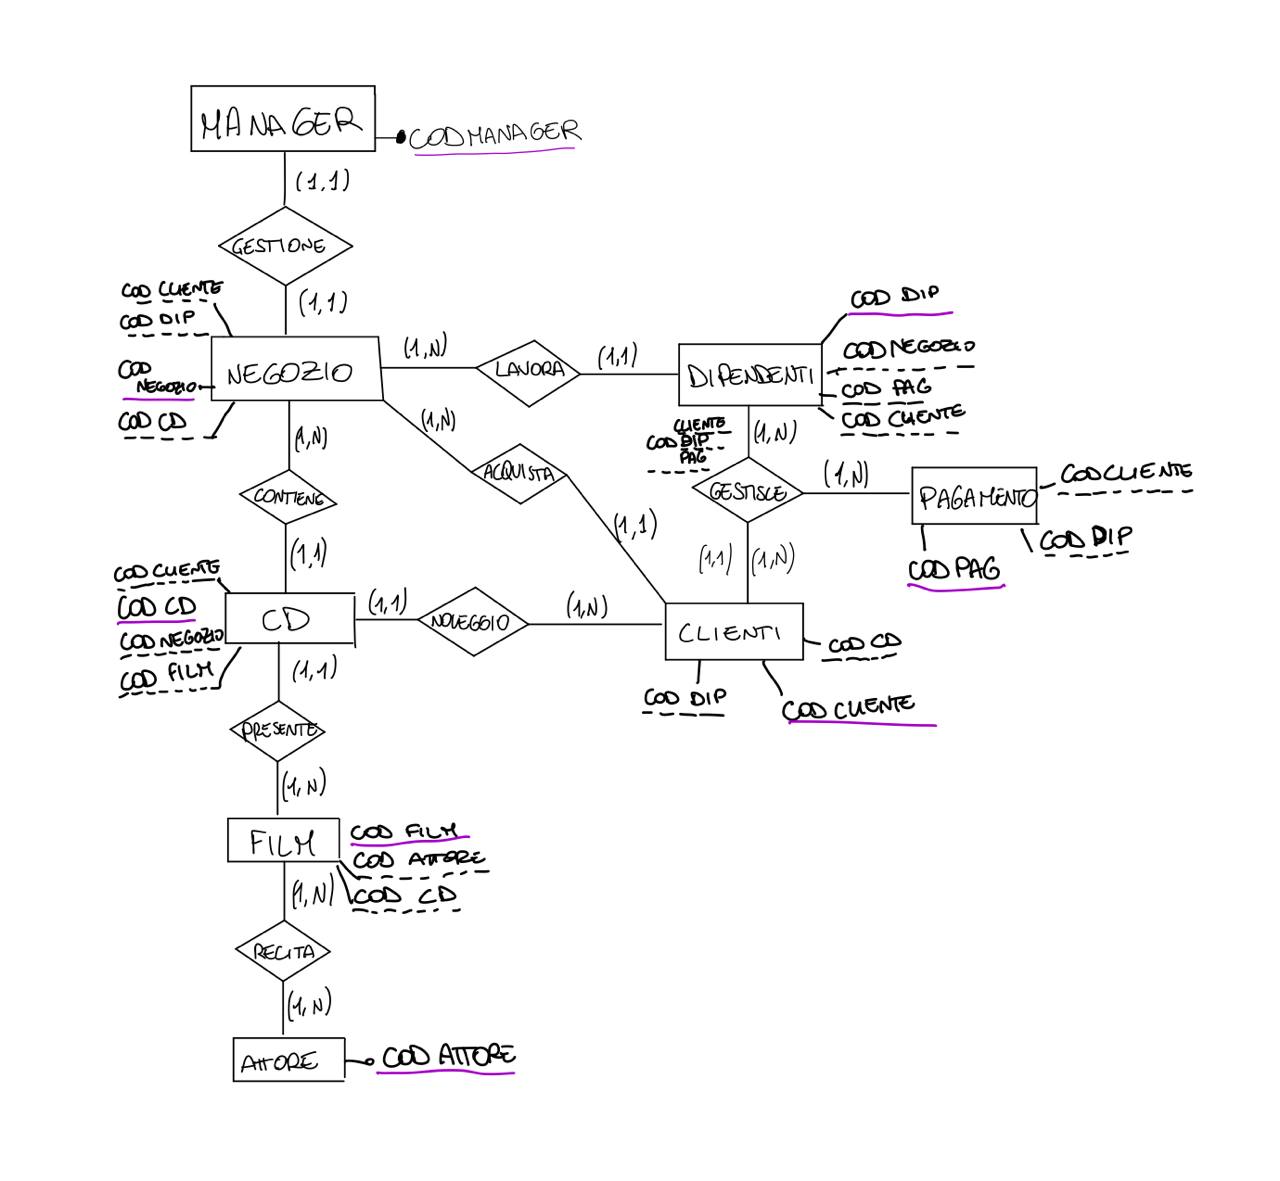 MANAGER
CODMANAGER
(1,1)
GESTIONE
(1,1)
COD CLIENTE
COD DIP
COD
NEGOZIO
COD CD
NEGOZIO
(1,N)
LAVORA
(1,1)
DIPENDENTI
COD DIP
COD NEGOZIO
COD PAG
COD CLIENTE
(1,N)
(1,N)
ACQUISTA
(1,1)
CLIENTE
COD DIP
PAG
(1,N)
GESTISCE
(1,N)
PAGAMENTO
COD CLIENTE
COD DIP
COD PAG
CONTIENE
(1,1)
(1,1)
(1,N)
COD CLIENTE
COD CD
COD NEGOZIO
COD FILM
CD
(1,1)
NOLEGGIO
(1,N)
CLIENTI
COD CD
COD DIP
COD CLIENTE
(1,1)
PRESENTE
(1,N)
FILM
COD FILM
COD ATTORE
COD CD
(1,N)
RECITA
(1,N)
ATTORE
COD ATTORE